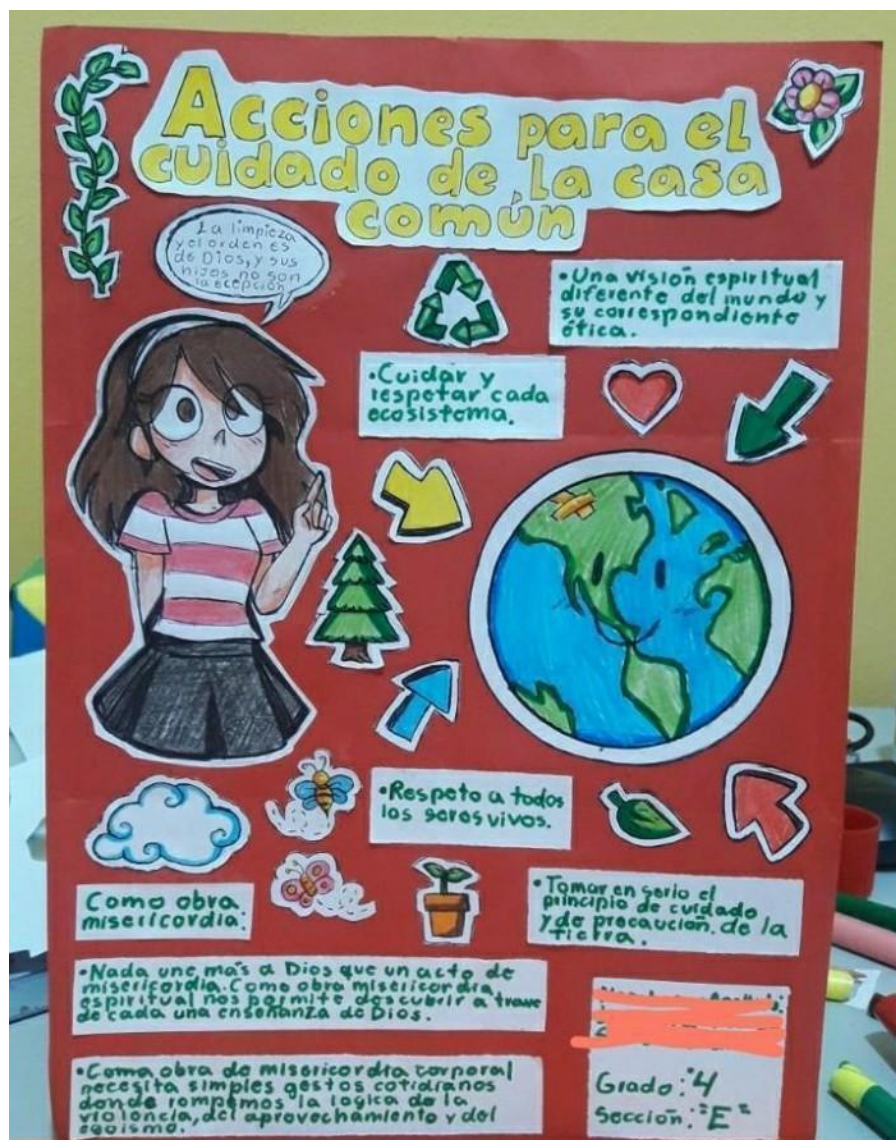 Acciones para el
cuidado de la casa
común
La limpieza
y el orden es
de Dios, y sus
hijos no son
la ecepción
•Una visión espiritual
diferente del mundo y
su correspondiente
ética.
•Cuidar y
respetar cada
ecosistema.
•Respeto a todos
los seres vivos.
Como obra
misericordia:
•Tomar en serio el
principio de cuidado
y de precaución. de la
tierra.
•Nada une más a Dios que un acto de
misericordia. Como obra misericordia
espiritual nos permite descubrir a trave
de cada una enseñanza de Dios.
•Como obra de misericordia corporal
necesita simples gestos cotidianos
donde rompemos la logica de la
violencia, del aprovechamiento y del
egoismo.
Grado: "4
Sección: "E"